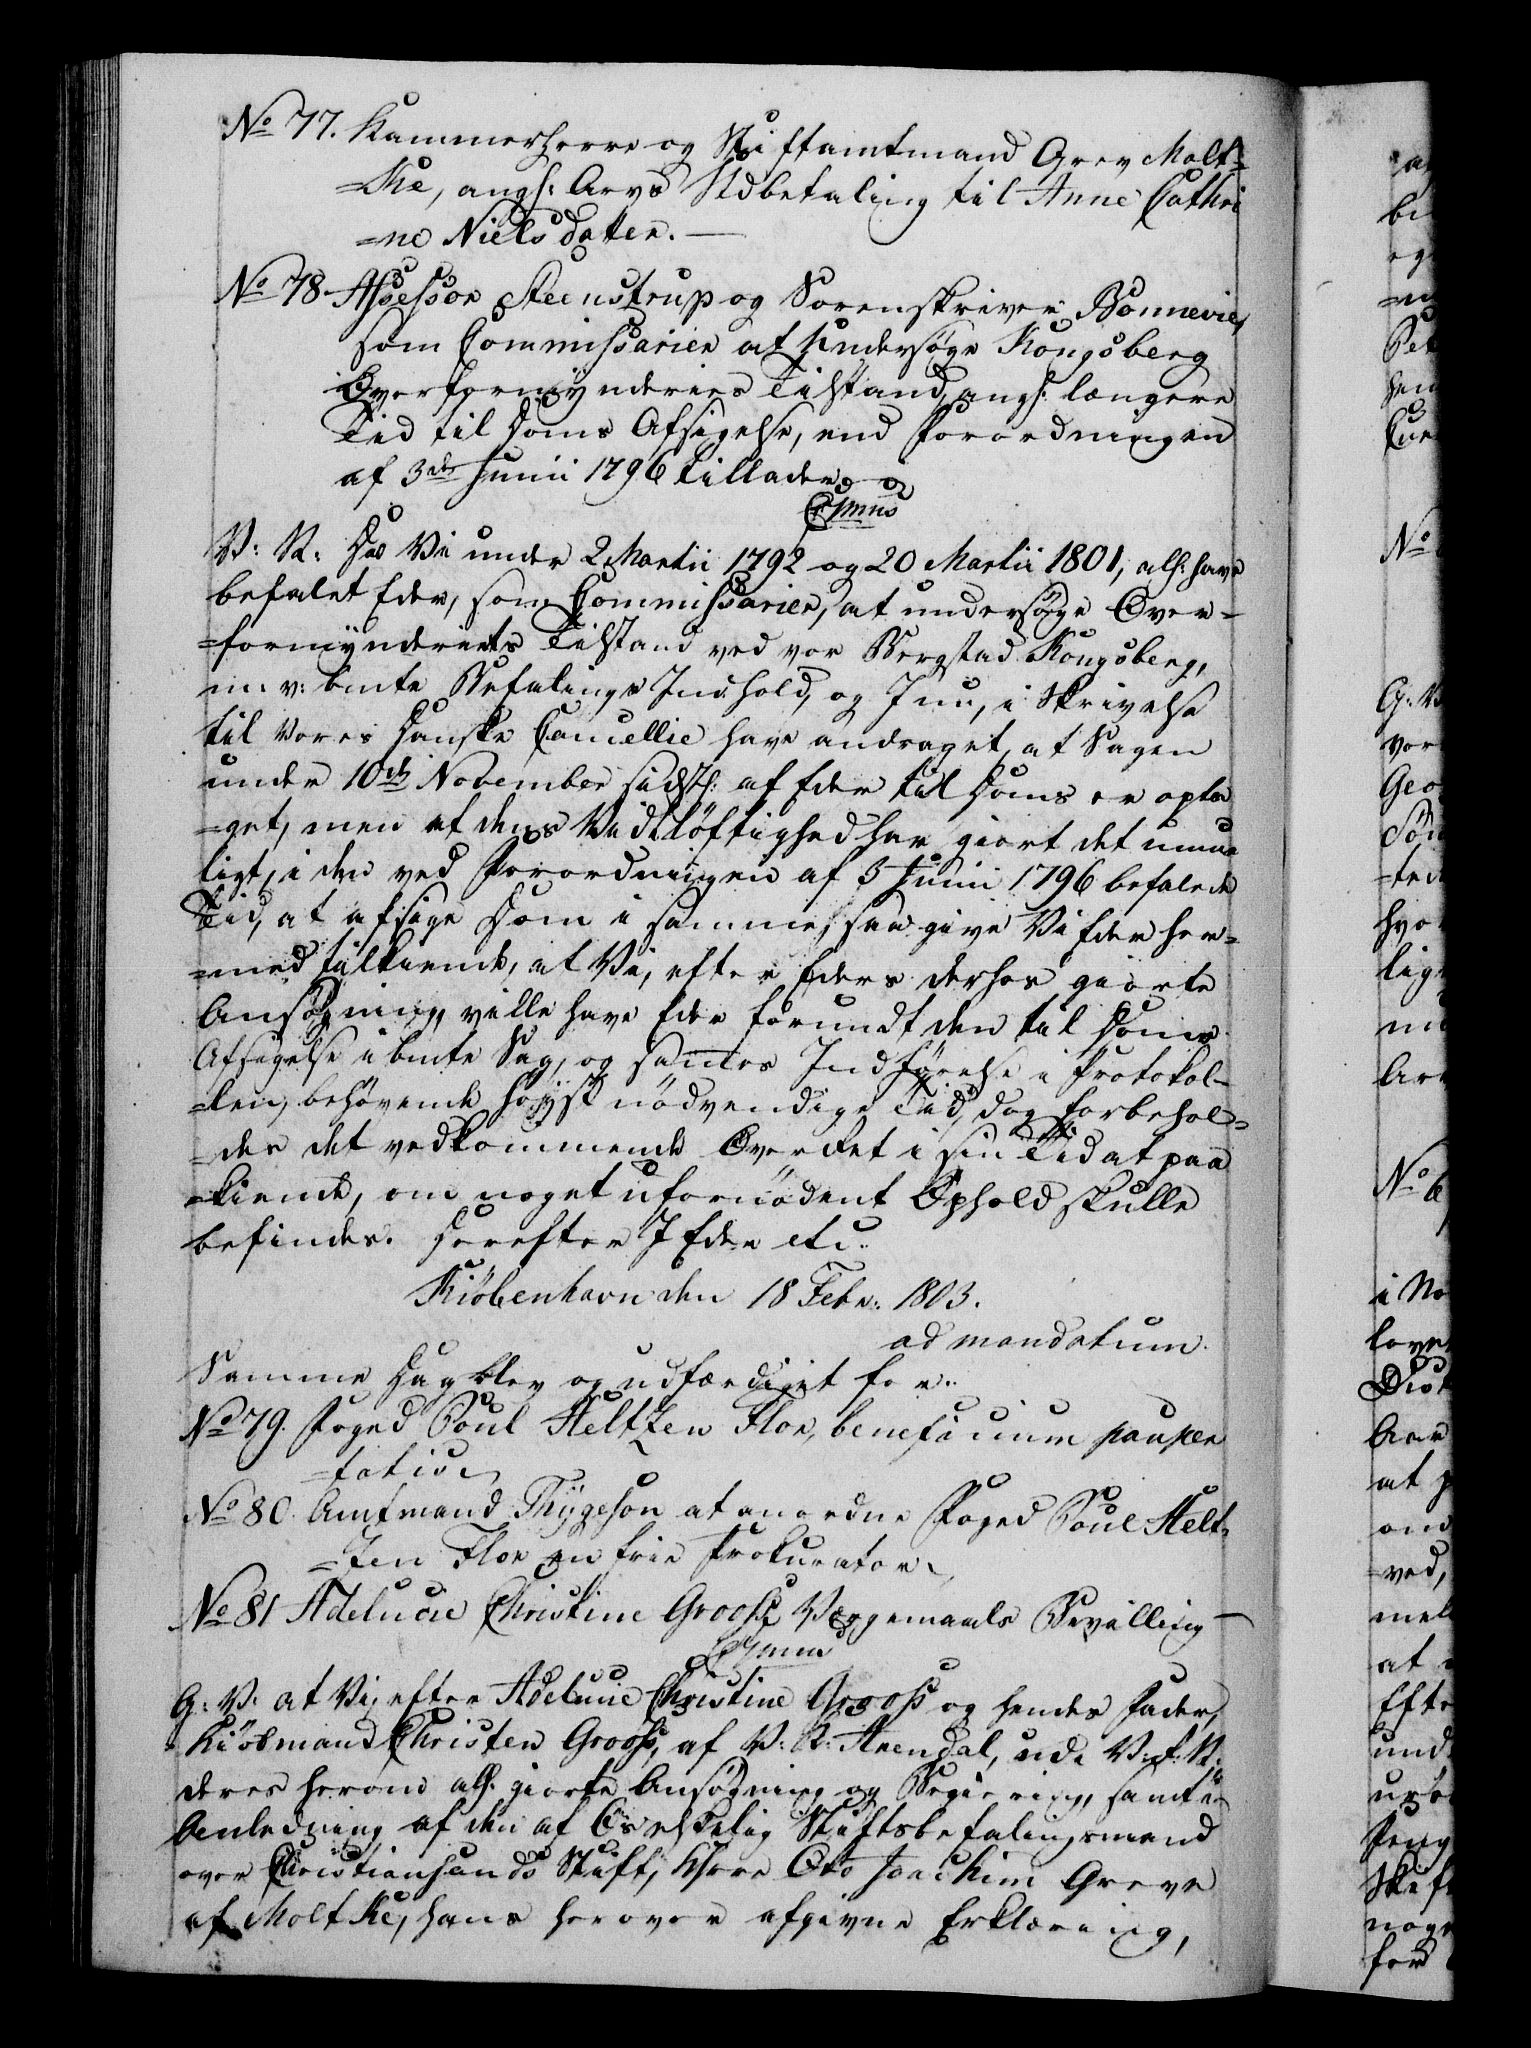 No 77. Kammerherre og Stiftamtmand Grev Molt-
=ke, angh: Arvs Udbetaling til Anne Cathri
=ne Nielsdatter. —
No 78 Assessor Steenstrup og Sorenskriver Bonnevie,
som Commissarier at undersøge Kongsberg
Overformynderies Tilstand, angh: længere
Tid til Doms Afsigelse, end Forordningen
af 3die Junii 1796 tillader.
V: R: Da Vi under 2 Martii 1792 og 20 Martii 1801, alh: have
befalet Eder, som Commissarier, at undersøge Over-
=formynderiets Tilstand ved vor Bergstad Kongsberg,
m: v: bmte Befalings Indhold, og I nu, i Skrivelse
til vores Danske Cancellie have andraget, at Sagen
under 10de November sidsth: af Eder til Doms er opta
=get, men at dens Vidtløftighed har giort det umue
ligt, i den ved Forordningen af 3 Junii 1796 befalede
Tid, at afsige Dom i samme, saa give Vi Eder her-
=med tilkiende, at Vi, efter Eders derhos giorte
Ansøgning, ville have Eder forundt den til Doms
Afsigelse i bmte Sag, og sammes Indførelse i Protokol-
=len, behøvende høyst nødvendige Tid, dog forbehol-
=des det vedkommende Overret i sin Tid at paa
=kiende, om noget ufornødent Ophold skulle
befindes. Derefter I Eder etc.
Kiöbenhavn den 18 Febr: 1803.
ad mandatum.
Samme Dag blev og udfærdiget for:
No 79. Foged Poul Heltzen Flor, beneficium pauper
=tatis
No 80. Amtmand Thygeson at anordne Foged Poul Helt-
=zen Flor en frie Prokurator
No 81 Adelucie Christine Grooss Værgemaals Bevilling —
G: V: at Vi, efter Adelucie Christine Grooss og hendes Fader,
Kiöbmand Christen Grooss, af V: K: Arendal, udi V: R: N:
deres herom alh: giorte Ansøgning og Begiering, samt i
Anledning af den af Os elskelig Stiftsbefalingsmand
over Christiansands Stift, Herr Otto Joachim Greve
af Moltke, hans herover afgivne Erklæring,